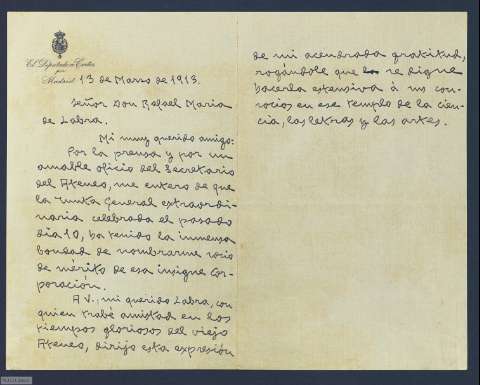 El Diputado a Cortes
por
Madrid
13 de Marzo de 1913.
Señor Don Rafael María
de Labra.
Mi muy querido amigo:
Por la prensa y por un
amable oficio del Secretario
del Ateneo, me entero de que
la Junta General extraordi-
naria celebrada el pasado
día 10, ha tenido la inmensa
bondad de nombrarme socio
de mérito de esa insigne Cor-
poración.
A V., mi querido Labra, con
quien trabé amistad en los
tiempos gloriosos del viejo
Ateneo, dirijo esta expresión
de mi acendrada gratitud,
rogándole que se digne
hacerla extensiva á sus con-
socios en ese templo de la cien-
cia, las letras y las artes.